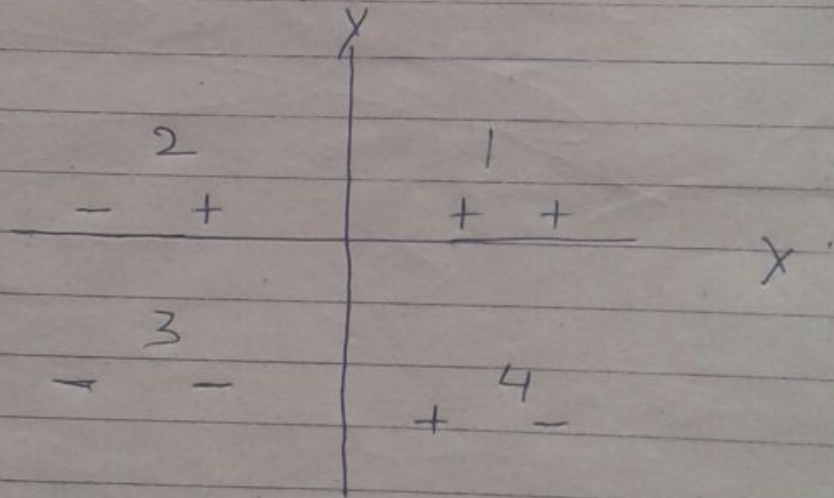 Y
2 1
− + + +
X
3
− −
4
+ −